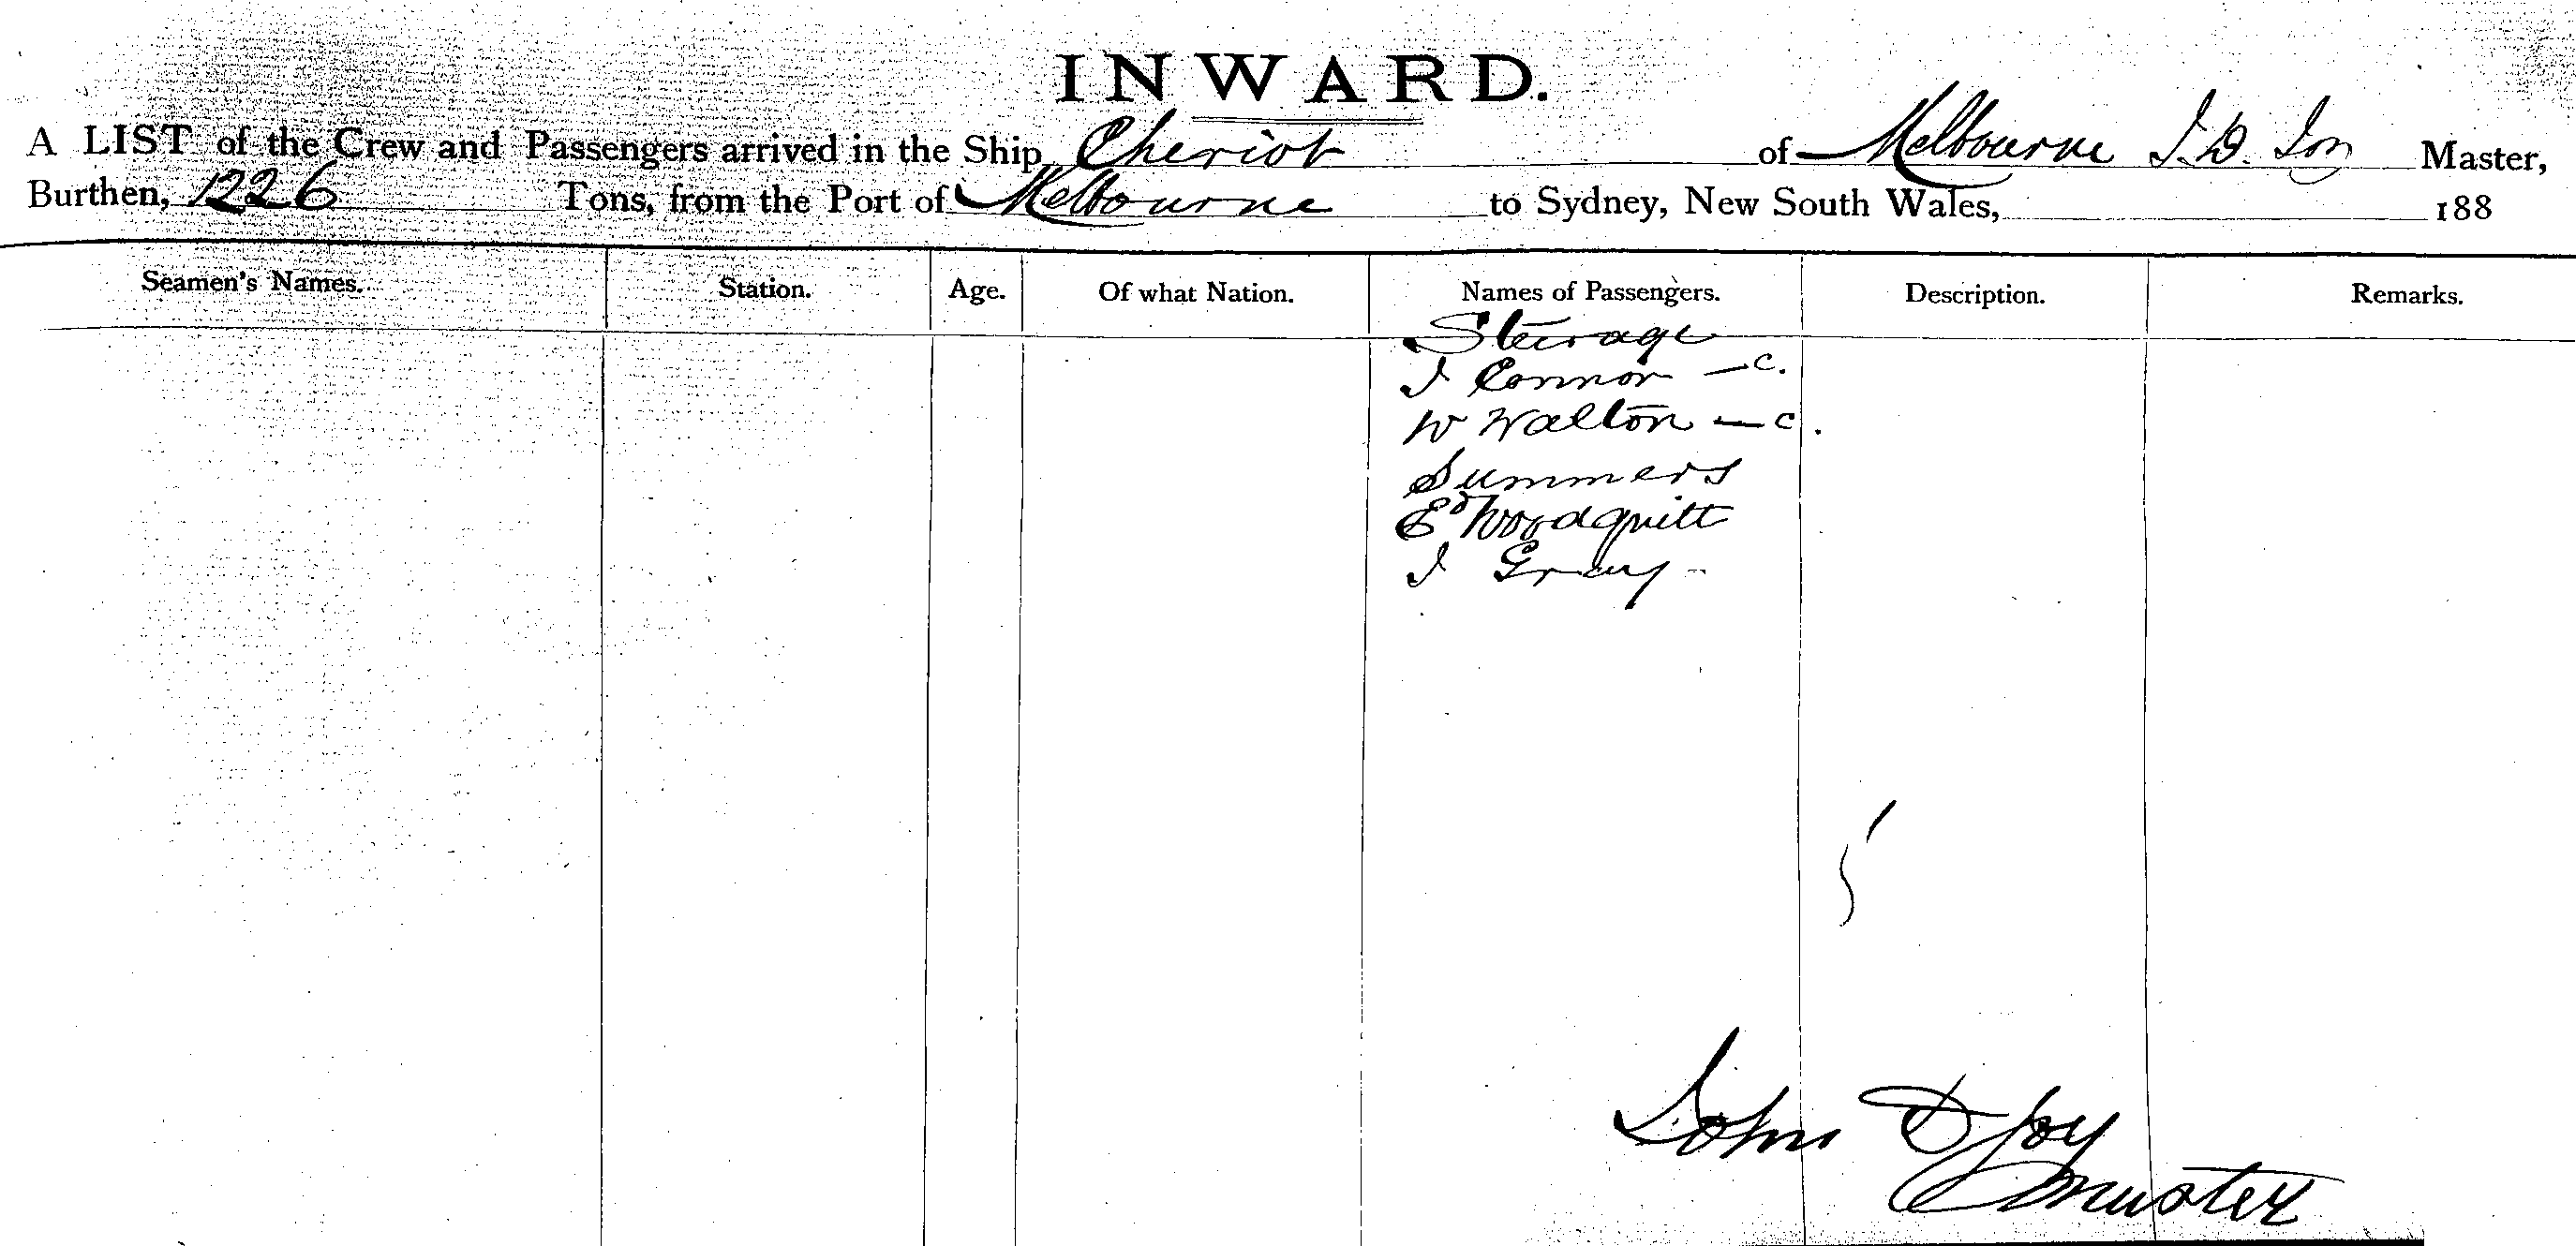 INWARD.
A LIST of the Crew and Passengers arrived in the Ship Cheviot of Melbourne J. D. Joy Master,
Burthen, 1226 Tons, from the Port of Melbourne to Sydney, New South Wales, 188
Seamen's Names. Station. Age. Of what Nation. Names of Passengers. Description. Remarks.
Steerage
J Connor — c.
W Walton — c.
Summers
Ed
J Gray
John D Joy
master